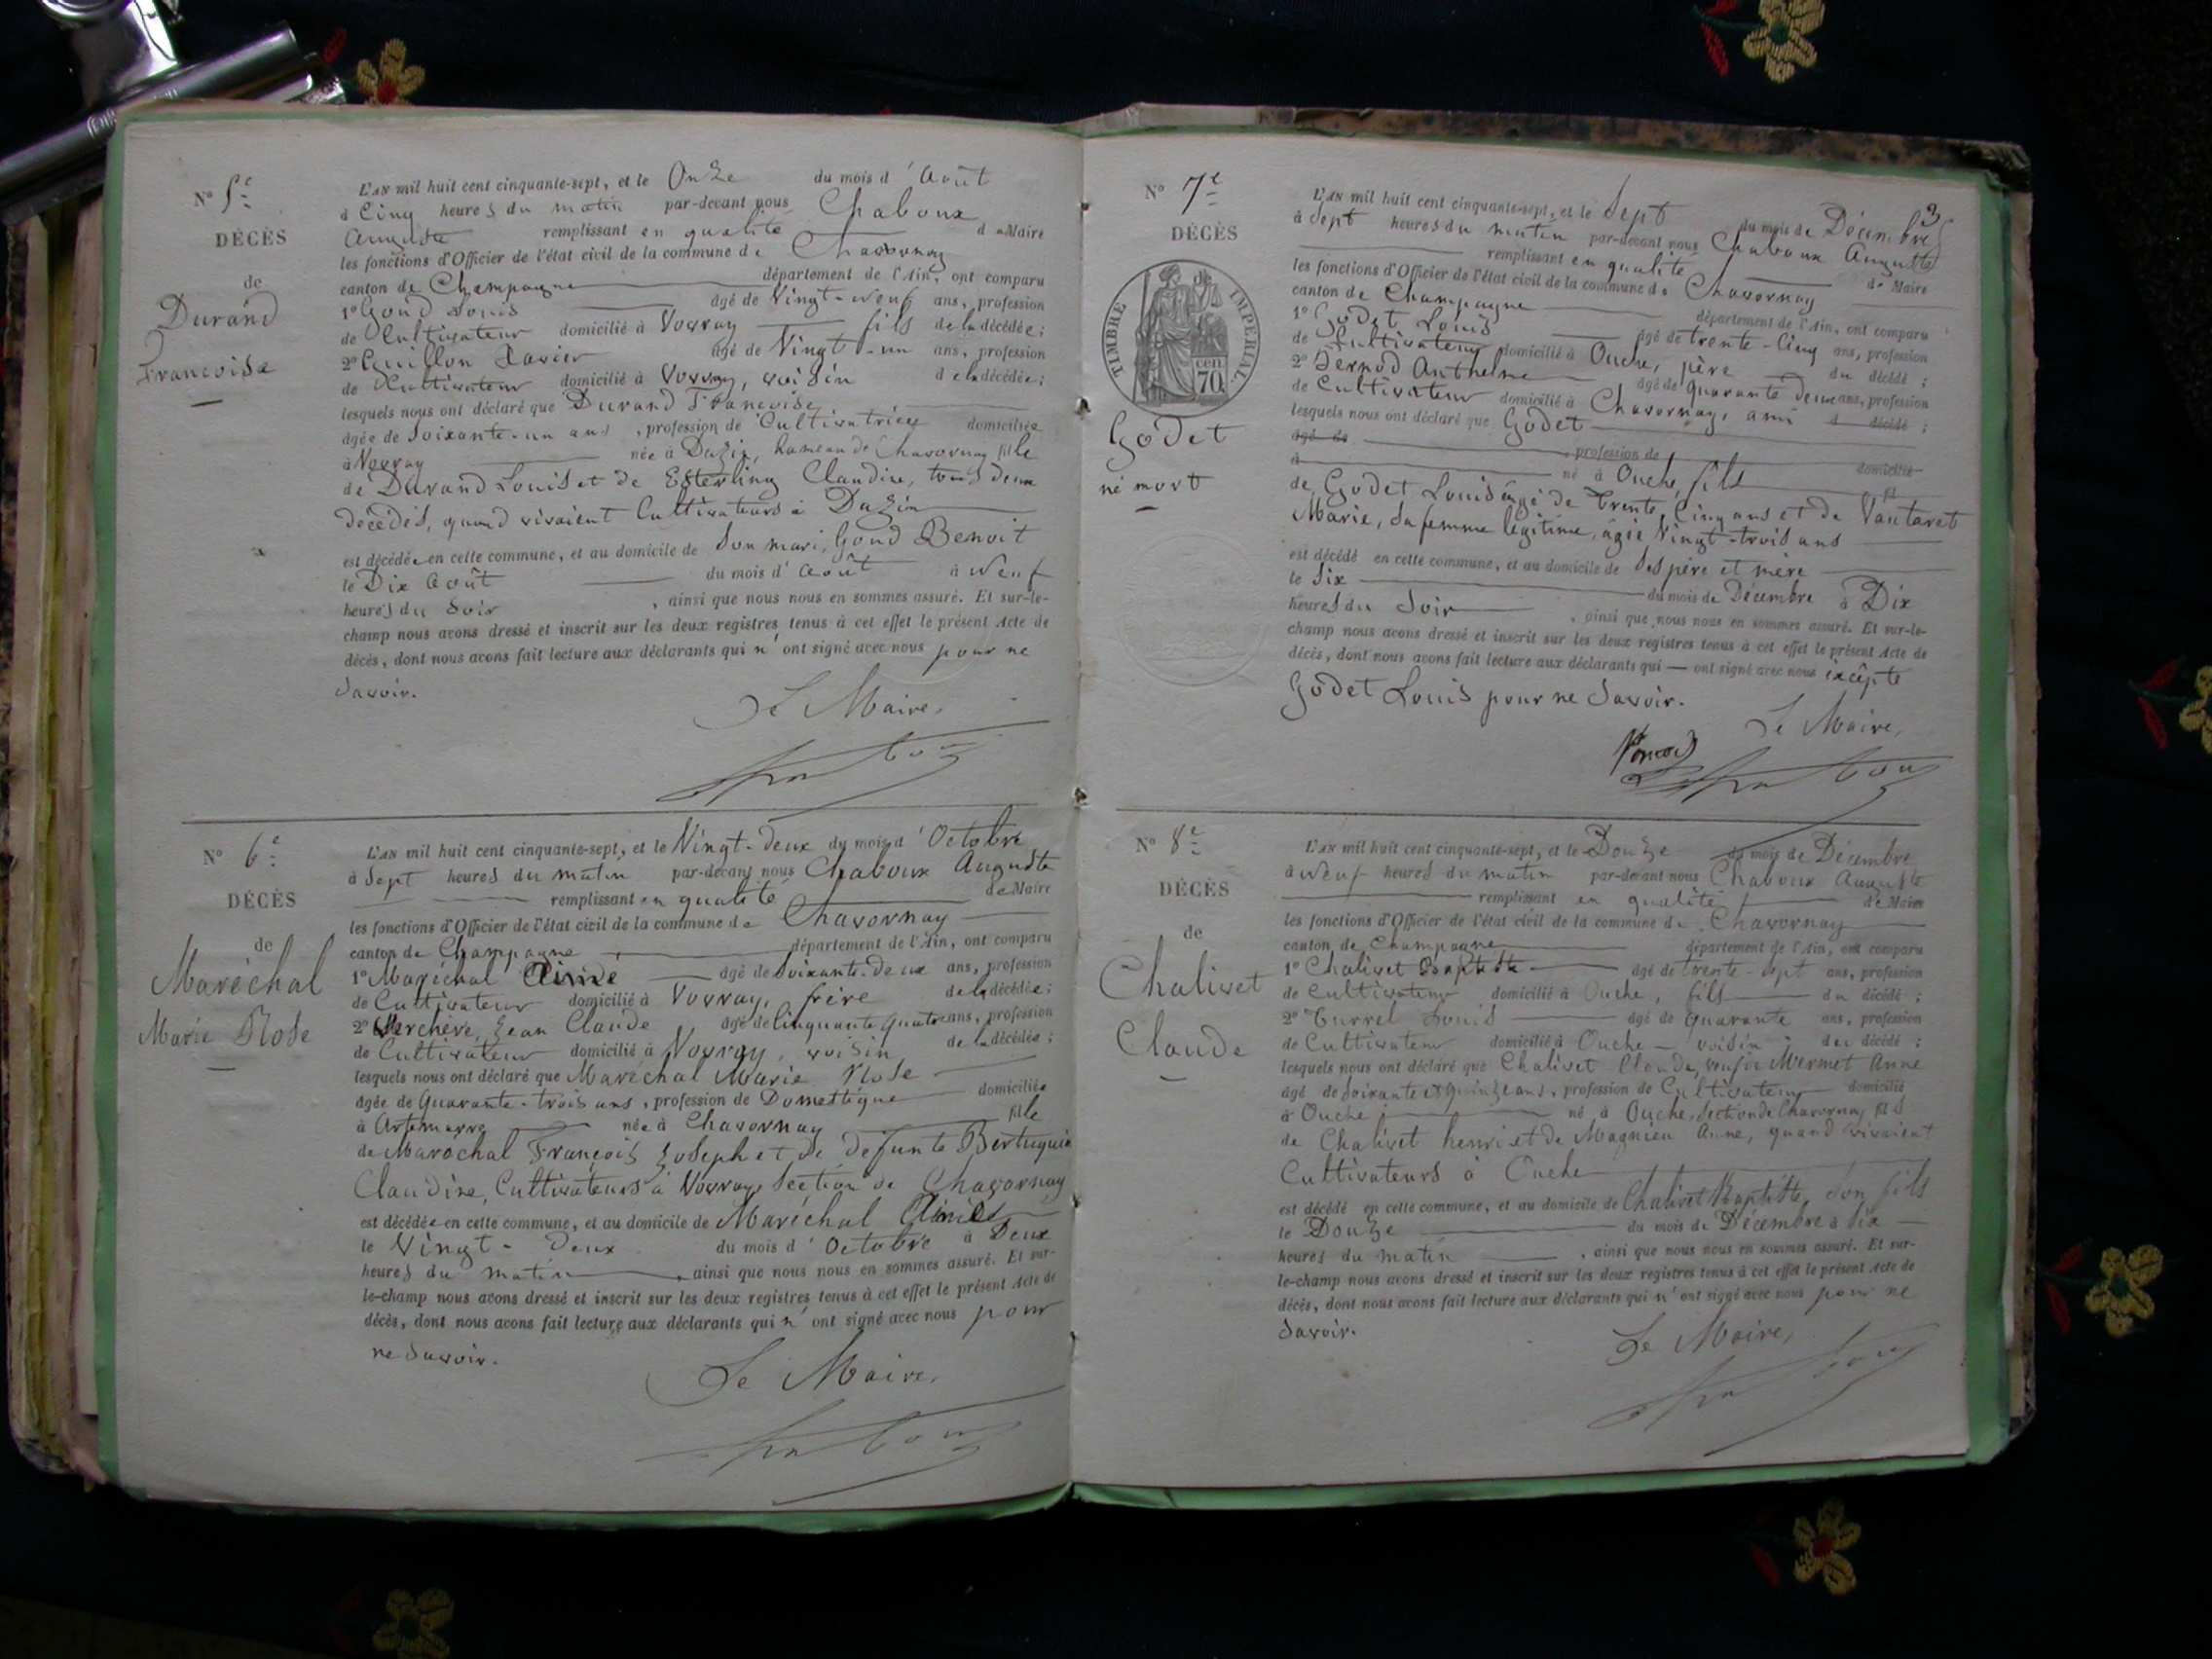 N° 5e
DÉCÈS
de
Durand
Francoise
L'AN mil huit cent cinquante-sept, et le Onze du mois d'Août
à Cinq heures du matin par-devant nous Chaboux
Auguste remplissant en qualité de Maire
les fonctions d'Officier de l'état civil de la commune de Chavornay
canton de Champagne département de l'Ain, ont comparu
1° Goud Louis âgé de Vingt-neuf ans, profession
de Cultivateur domicilié à Vovray fils de la décédée;
2° Guillon Xavier âgé de Vingt-un ans, profession
de Cultivateur domicilié à Vovray, voisin de la décédée;
lesquels nous ont déclaré que Durand Francoise
âgée de Soixante-un ans, profession de Cultivatrice domiciliée
à Vovray née à Dazin, hameau de Chavornay fille
de Durand Louis et de Esterling Claudine, tous deux
décédés, quand vivaient Cultivateurs à Dazin
est décédée en cette commune, et au domicile de Son mari, Goud Benoit
le Dix Août du mois d'Août à Neuf
heures du Soir, ainsi que nous nous en sommes assuré. Et sur-le-
champ nous avons dressé et inscrit sur les deux registres tenus à cet effet le présent Acte de
décès, dont nous avons fait lecture aux déclarants qui n'ont signé avec nous pour ne
Savoir.
Le Maire,
N° 6e
DÉCÈS
de
Maréchal
Marie Rose
L'AN mil huit cent cinquante-sept, et le Vingt-deux du mois d'Octobre
à Sept heures du matin par-devant nous Chaboux Auguste
remplissant en qualité de Maire
les fonctions d'Officier de l'état civil de la commune de Chavornay
canton de Champagne département de l'Ain, ont comparu
1° Maréchal Aimé âgé de Soixante-deux ans, profession
de Cultivateur domicilié à Vovray, frère de la décédée;
2° Verchère, Jean Claude âgé de Cinquante Quatre ans, profession
de Cultivateur domicilié à Vovray, voisin de la décédée;
lesquels nous ont déclaré que Maréchal Marie Rose
âgée de Quarante-trois ans, profession de Domestique domiciliée
à Artemarre née à Chavornay fille
de Maréchal François Joseph et de defunte
Claudine, Cultivateurs à Vovray, Section de Chavornay
est décédée en cette commune, et au domicile de Maréchal Aimé
le Vingt-deux du mois d'Octobre à Deux
heures du matin, ainsi que nous nous en sommes assuré. Et sur-
le-champ nous avons dressé et inscrit sur les deux registres tenus à cet effet le présent Acte de
décès, dont nous avons fait lecture aux déclarants qui n'ont signé avec nous pour
ne Savoir.
Le Maire,
3
N° 7e
DÉCÈS
TIMBRE IMPÉRIAL
cen.
70
Godet
né mort
L'AN mil huit cent cinquante-sept, et le Sept du mois de Décembre
à Sept heures du matin par-devant nous Chaboux Auguste
remplissant en qualité de Maire
les fonctions d'Officier de l'état civil de la commune de Chavornay
canton de Champagne département de l'Ain, ont comparu
1° Godet Louis âgé de trente-Cinq ans, profession
de Cultivateur domicilié à Ouche, père du décédé;
2° Bernod Anthelme âgé de Quarante deux ans, profession
de Cultivateur domicilié à Chavornay, ami d décédé;
lesquels nous ont déclaré que Godet
âgé de profession de domicilié
à né à Ouche, fils
de Godet Louis âgé de Trente Cinq ans et de Vautaret
Marie, Sa femme légitime, âgée Vingt-trois ans
est décédé en cette commune, et au domicile de Ses père et mère
le Six du mois de Décembre à Dix
heures du Soir, ainsi que nous nous en sommes assuré. Et sur-le-
champ nous avons dressé et inscrit sur les deux registres tenus à cet effet le présent Acte de
décès, dont nous avons fait lecture aux déclarants qui ont signé avec nous excépte
Godet Louis pour ne Savoir.
Le Maire,
N° 8e
DÉCÈS
de
Chalivet
Claude
L'AN mil huit cent cinquante-sept, et le Douze du mois de Décembre
à Neuf heures du matin par-devant nous Chaboux Auguste
remplissant en qualité de Maire
les fonctions d'Officier de l'état civil de la commune de Chavornay
canton de Champagne département de l'Ain, ont comparu
1° Chalivet Baptiste âgé de trente-sept ans, profession
de Cultivateur domicilié à Ouche, fils du décédé;
2° Turrel Louis âgé de Quarante ans, profession
de Cultivateur domicilié à Ouche voisin du décédé;
lesquels nous ont déclaré que Chalivet Claude, veuf de Mermet Anne
âgé de Soixante et Quinze ans, profession de Cultivateur domicilié
à Ouche né à Ouche, Section de Chavornay fils
de Chalivet henri et de Magnien Anne, quand vivaient
Cultivateurs à Ouche
est décédé en cette commune, et au domicile de Chalivet Baptiste, Son fils
le Douze du mois de Décembre à Six
heures du matin, ainsi que nous nous en sommes assuré. Et sur-
le-champ nous avons dressé et inscrit sur les deux registres tenus à cet effet le présent Acte de
décès, dont nous avons fait lecture aux déclarants qui n'ont signé avec nous pour ne
Savoir.
Le Maire,